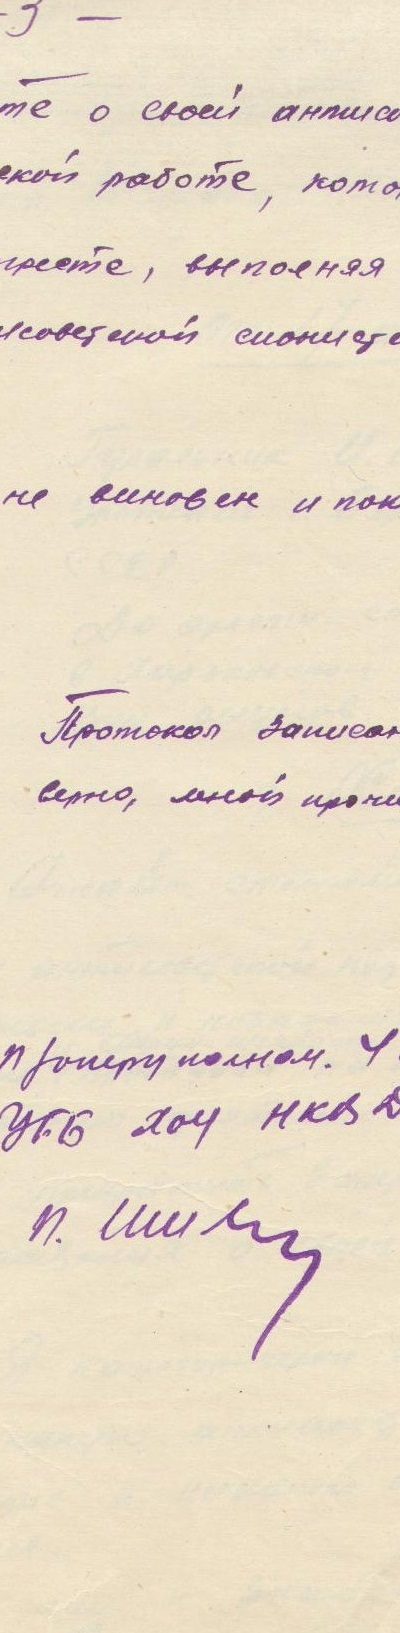 -3-
те о своей антисо
ской работе, кото
тресте, выполняя
исоветской сионистс
не виновен и пок
Протокол записан
верно, мной прочи
УГБ ХОУ НКВД
П. Ши